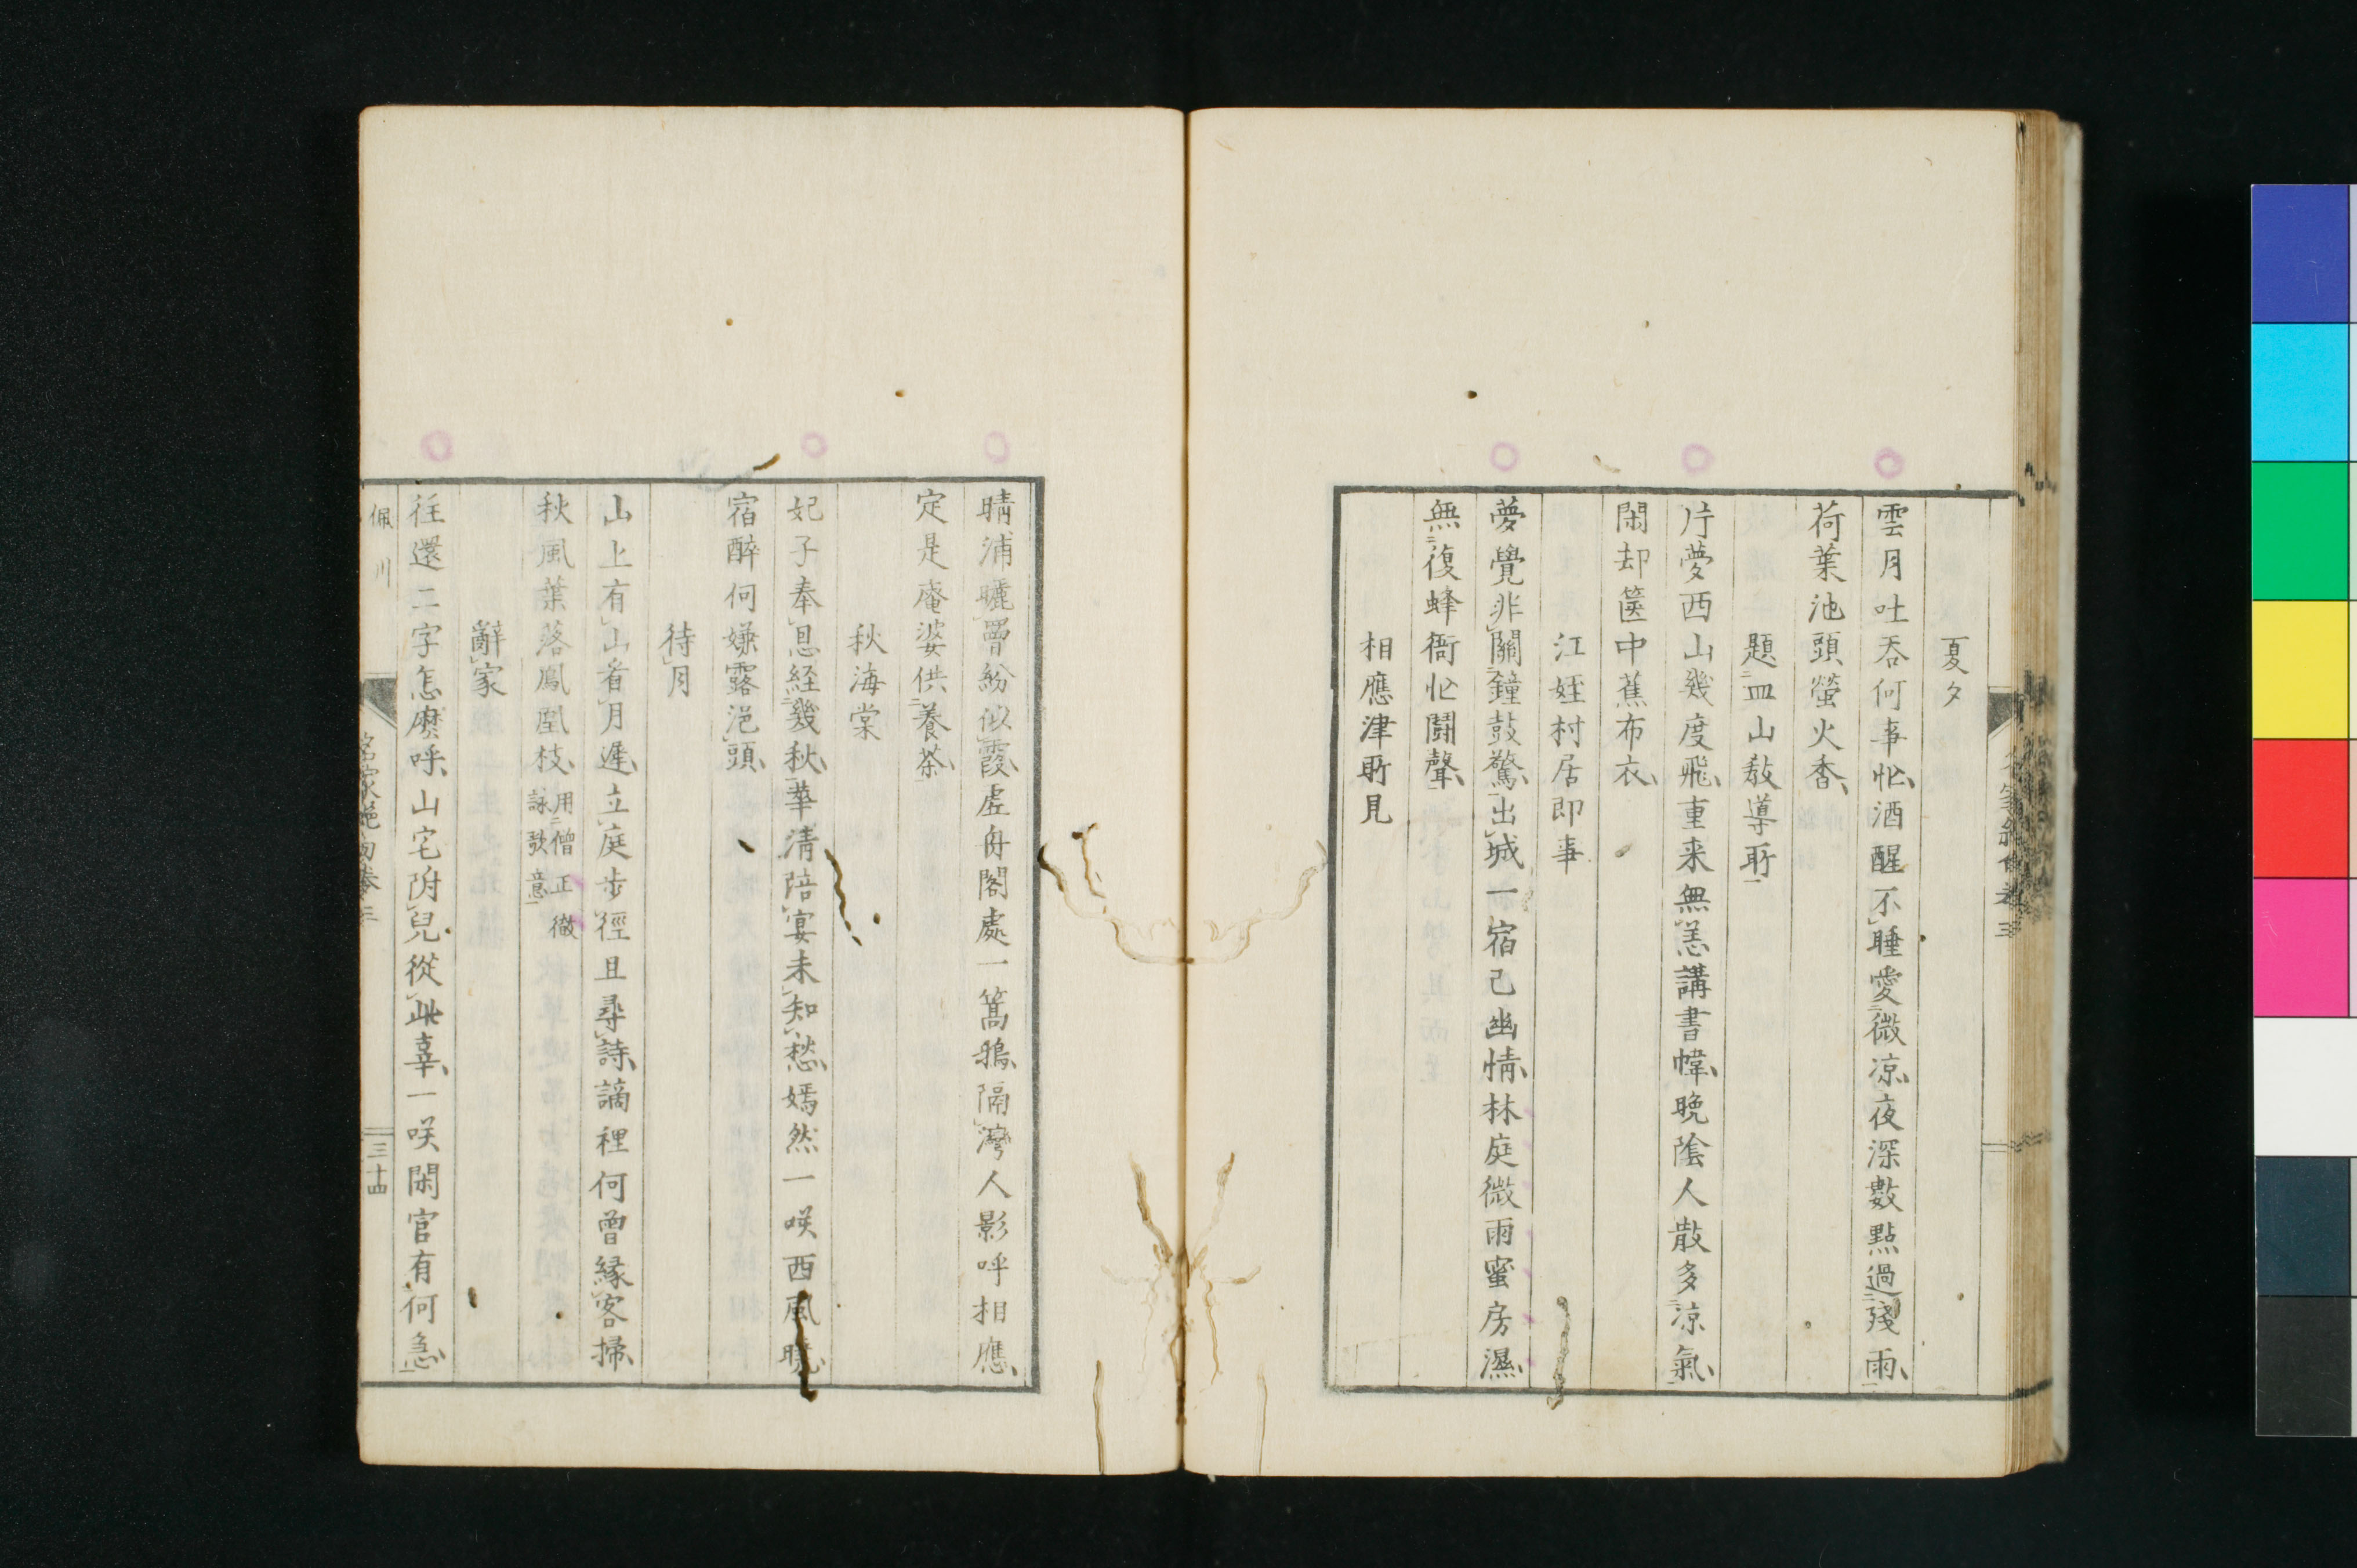 夏夕
雲月吐吞何事忙酒醒不睡愛微凉夜深數點過殘雨
荷葉池頭螢火香
題皿山敎導所
片夢西山幾度飛重来無恙講書幃晩陰人散多凉氣
閑却篋中蕉布衣
江姪村居即事
夢覺非關鐘鼓驚出城一宿己幽情林庭微雨蜜房濕
無復蜂衙忙鬪聲
相應津所見
晴浦曬罾紛似霞虚舟閣處一篙鵶隔灣人影呼相應
定是庵婆供養茶
秋海棠
妃子奉恩経幾秋華清陪宴未知愁嫣然一咲西風曉
宿醉何嫌露浥頭
待月
山上有山看月遲立庭步徑且尋詩謫裡何曾緣客掃
秋風葉落鳳凰枝用僧正徹
詠歌意
辭家
往還二字怎麽呼山宅附兒從此辜一咲閑官有何急
佩川
名家絶句卷三
三十四